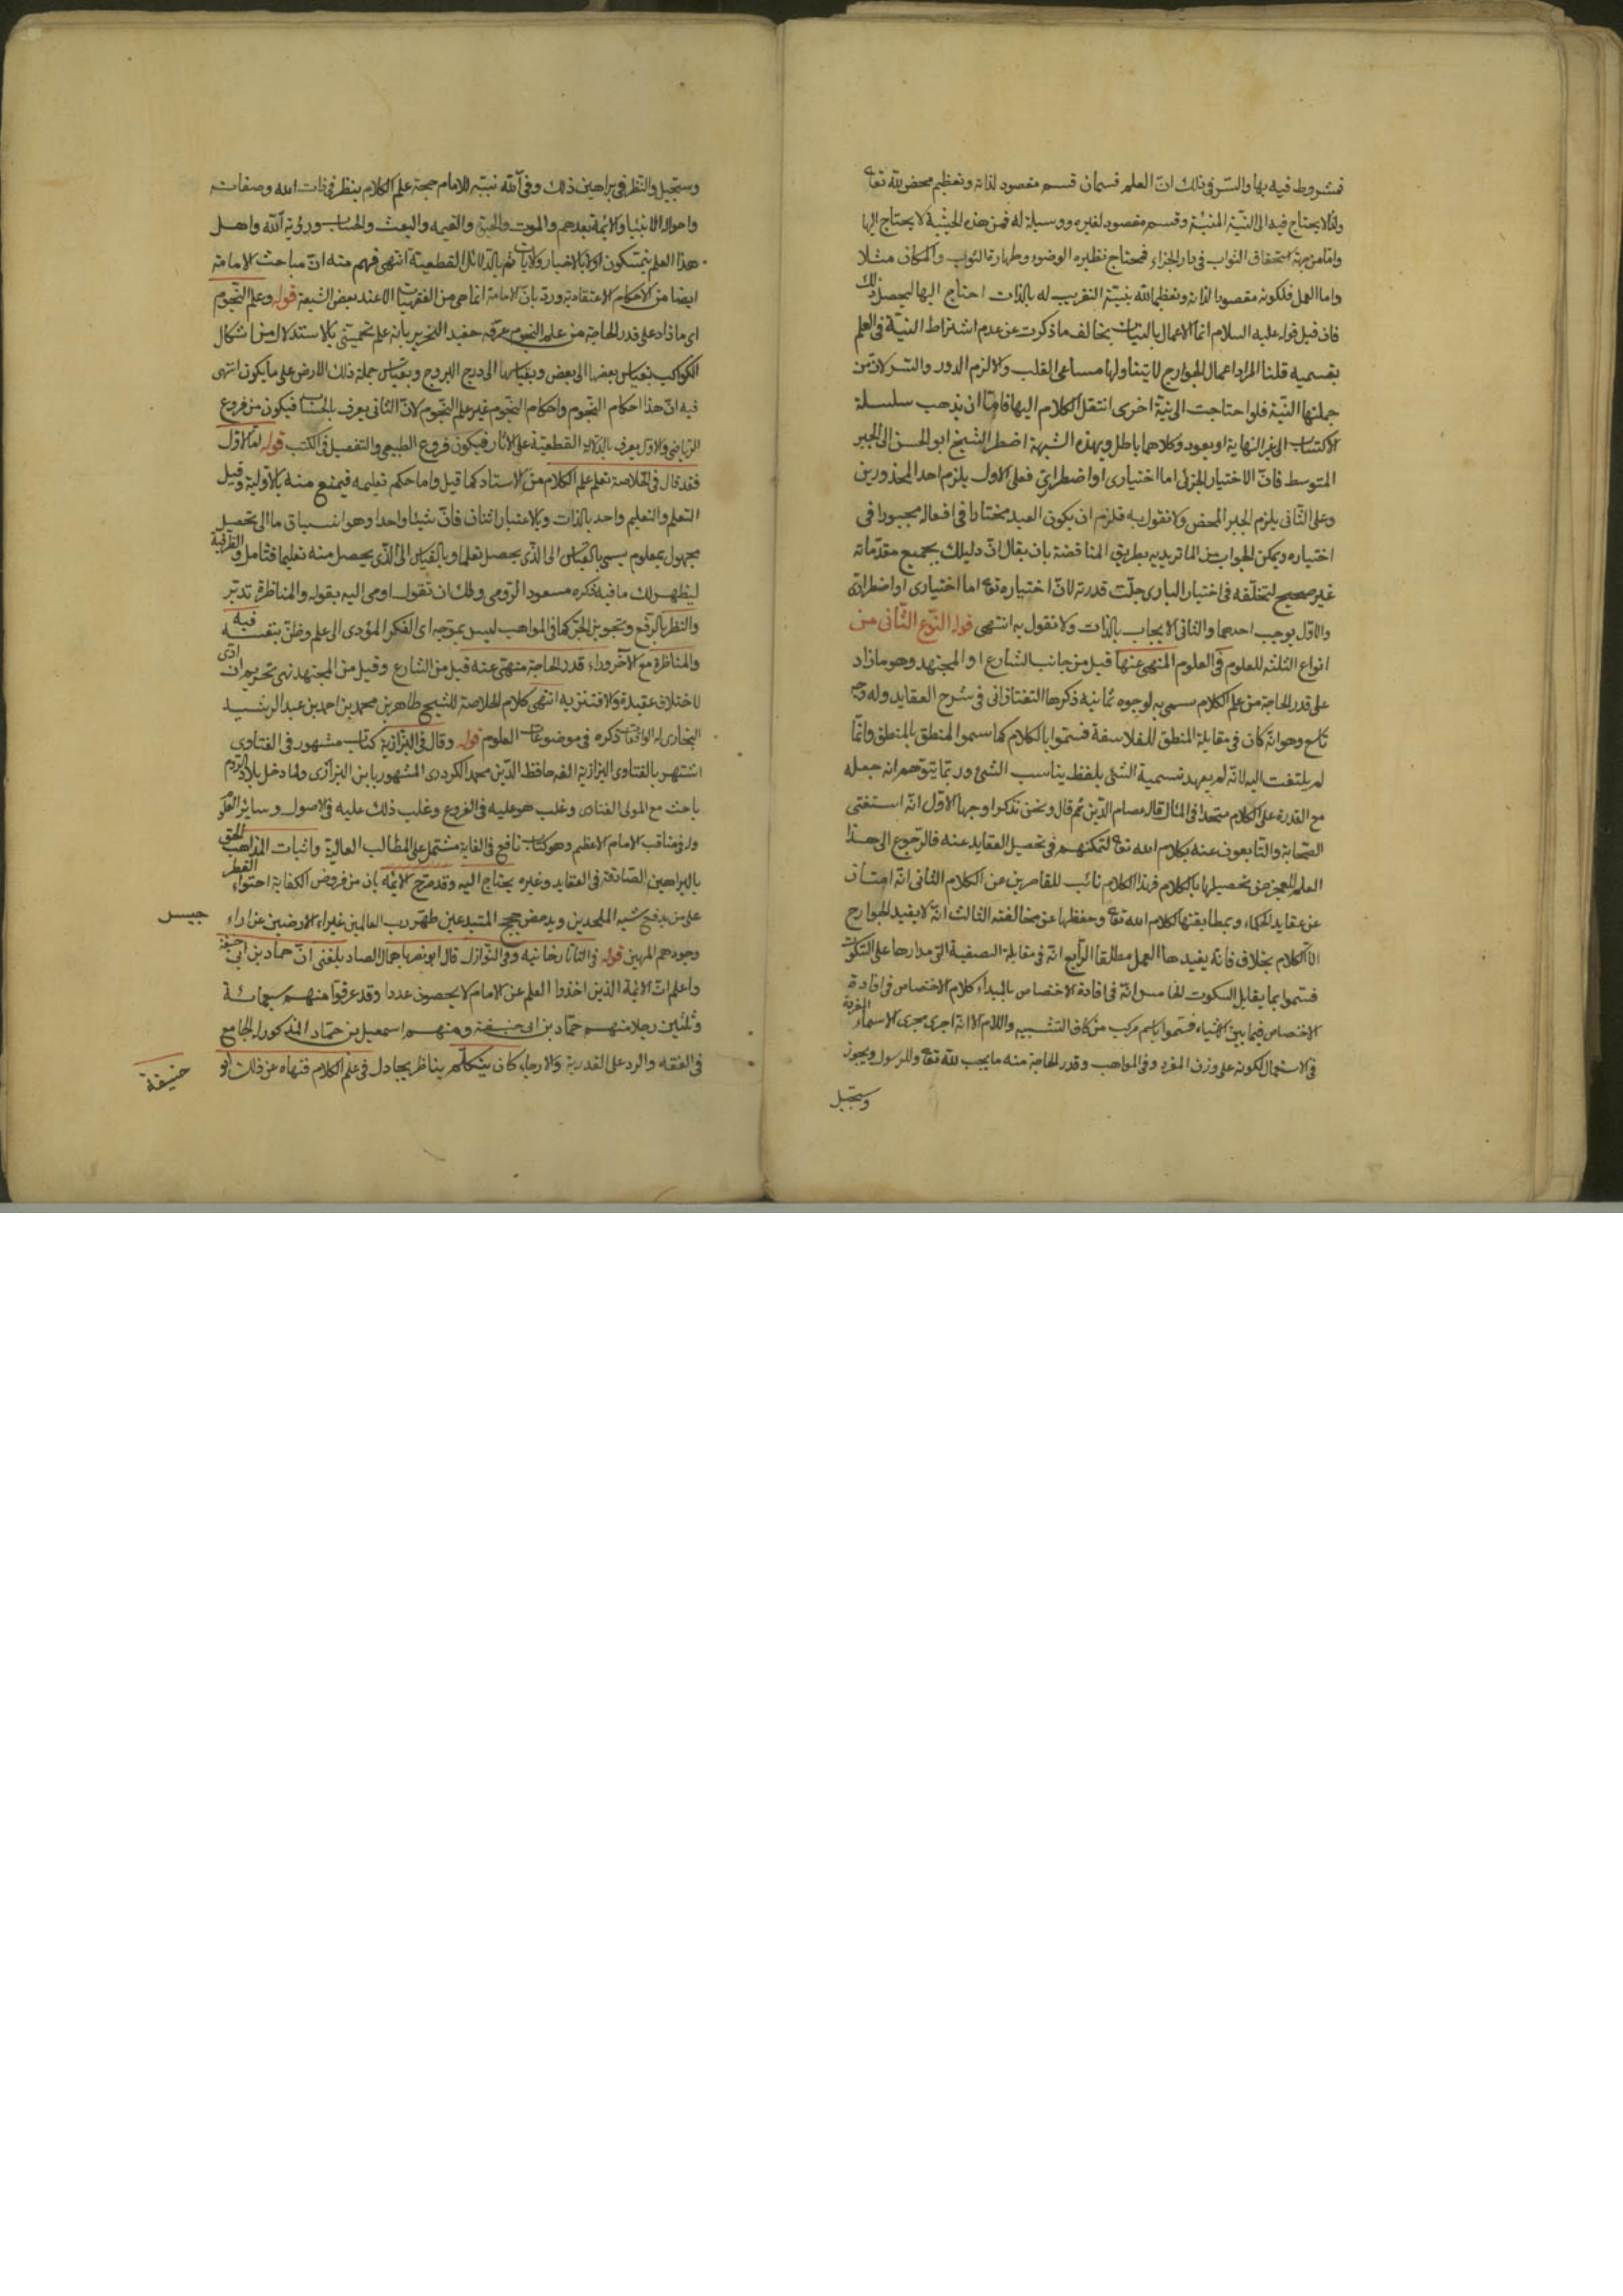 فشروط فيه بها والسر فى ذلك ان العلم قسمان قسم مقصود لذاته وتعظيم محض لله تعا
ولذا لا يحتاج فيه الى النية المنبئة وقسم مقصود لغيره ووسيلة له فمن هذه الحيثية لا يحتاج اليها
واما من جهة استحقاق الثواب فى دار الجزاء فيحتاج نظيره الوضوء وطهارة الثوب والمكان مثلا
واما العمل فلكونه مقصودا لذاته وتعظيما لله بنية التقريب له بالذات احتاج اليها ليحصل ذلك
فان قيل قوله عليه السلام انما الاعمال بالنيات يخالف ما ذكرت عن عدم اشتراط النية فى العلم
بقسميه قلنا المراد اعمال الجوارح لا يتناولها مساعى القلب والا لزم الدور والتسـ لان من
جملتها النية فلو احتاجت الى نية اخرى انتقل الكلام اليها فاما ان يذهب سلسلة
الاكتساب الى غير النهاية او يعود وكلاهما باطل وبهذه الشبهة اضطر الشيخ ابو الحسن الى الجبر
المتوسط فان الاختيار الجزئى اما اختيارى او اضطرارى فعلى الاول يلزم احد المحذورين
وعلى الثانى يلزم الجبر المحض ولا نقول به فلزم ان يكون العبد مختارا فى افعاله مجبورا فى
اختياره ويمكن الجواب من الماتريديه بطريق المناقضة بان يقال ان دليلك بجميع مقدماته
غير صحيح لتخلفه فى اختيار البارى جلت قدرته لان اختياره تعا اما اختيارى او اضطرارى
والاول يوجب احدهما والثانى الايجاب بالذات ولا نقول به انتهى قوله النوع الثانى من
انواع الثلثة للعلوم فى العلوم المنهى عنها قيل من جانب الشارع او المجتهد وهو ما زاد
على قدر الحاجة من علم الكلام سمى به لوجوه ثمانيه ذكرها التفتازانى فى شرح العقايد وله وجه
تاسع وهو انه كان فى مقابلة المنطق للفلاسفة فسموا بالكلام كما سموا المنطق بالمنطق وانما
لم يلتفت اليه لانه لم يعهد تسمية الشئ بلفظ يناسب الشئ وربما يتوهم انه جعله
مع القدرة على الكلام متحدا فى المثال قال عصام الدين ثم قال ونحن نذكر اوجها الاول انه استغنى
الصحابة والتابعون عنه بكلام الله تعا لتمكنهم فى تحصيل العقايد عنه فالرجوع الى هذا
العلم للعجز من تحصيلها بالكلام فهذا الكلام نائب للقاصرين عن الكلام الثانى انه امتاز
عن عقايد الحكماء وبمطابقتها كلام الله تعا وحفظها عن مخالفته الثالث انه لا يفيد الجوارح
الا الكلام بخلاف فانه يفيدها العمل مطلقا الرابع انه فى مقابلة التصفية التى مدارها على السكوت
فسموا بما يقابل السكوت الخامس انه فى افادة الاختصاص بالمبداء كلام الاختصاص فى افادة
الاختصاص فيما بين الاشياء فسموا باسم مركب من كاف التشبيه واللام الا انه اجرى مجرى الاسماء المفردة
فى الاستعمال لكونه على وزن المفرد وفى المواهب وقدر الحاجة منه ما يجب لله تعا وللرسول ويجوز
ويستحيل
ويستحيل والنظر فى براهين ذلك وفى نبيه للامام حجة علم الكلام ينظر فى ذات الله وصفاته
واحوال الانبياء والائمة بعدهم والموت والقيمه والبعث والحساب ورؤية الله واهل
هذا العلم يتمسكون اولا بالاخبار والايات ثم بالدلائل القطعية انتهى فهم منه ان مباحث الامامة
ايضا من الاحكام الاعتقادية ورد بان الامامة انما هى من الفقهيات الا عند بعض الشيعة قوله وعلم النجوم
اى ما زاد على قدر الحاجة من علم النجوم عرفه حفيد التحرير بانه علم تخمينى بالاستدلال من اشكال
الكواكب بقياس بعضها الى بعض وبقياسها الى درج البروج وبقياس جملة ذلك الارض على ما يكون انتهى
فيه ان هذا احكام النجوم واحكام النجوم غير علم النجوم لان الثانى يعرف بالحساب فيكون من فروع
الرياضى والاول يعرف بالدلالة القطعية على الاثار فيكون فروع الطبيعى والتفصيل فى الكتب قوله اما الاول
فقد قال فى الخلاصة تعلم علم الكلام من الاستاد كما قيل واما حكم تعليمه فيمنع منه بالاولية وقيل
التعلم والتعليم واحد بالذات وبالاعتبار اثنان فان شيئا واحدا وهو انسياق ما الى تحصيل
مجهول بمعلوم يسمى بالقياس الى الذى يحصل تعلما وبالقياس الى الذى يحصل منه تعليما فتأمل والظرفية
ليظهر لك ما فيه ذكره مسعود الرومى ولك ان تقول اومى اليه بقوله والمناظرة تدبر
والنظر بالرفع وتجويز الجر كما فى المواهب ليس بموجه اى الفكر المؤدى الى علم وظن بنفسه فيه
والمناظرة مع الآخر وراء قدر الحاجة منهى عنه قيل من الشارع وقيل من المجتهد نهى تحريم ان ادى
لاختلاف عقيدة والا فتنزيه انتهى كلام الخلاصة للشيخ طاهر بن محمد بن احمد بن عبد الرشيد
البخارى له الواقعات ذكره فى موضوعات العلوم قوله وقال فى البزازية كتاب مشهور فى الفتاوى
اشتهر بالفتاوى البزازية الفه حافظ الدين محمد الكردرى المشهور بابن البزازى ولما دخل بلاد الروم
باحث مع المولى الفنارى وغلب هو عليه فى الفروع وغلب ذلك عليه فى الاصول وسائر العلوم
وله فى مناقب الامام الاعظم وهو كتاب نافع فى الغاية مشتمل على المطالب العالية واثبات المذاهب الحق
بالبراهين الصادقة فى العقايد وغيره يحتاج اليه وقد صرح الائمه بان من فروض الكفاية احتواء القطر
على من يدفع شبه الملحدين ويدحض حجج المبتدعين طهر رب العالمين غبراء الارضين عن اراء جيس
وجودهم المهين قوله فى التاتارخانيه وفى النوازل قال ابو نصر بلغنى ان حماد بن ابى حنيفة
واعلم ان الائمة الذين اخذوا العلم عن الامام لا يحصون عددا وقد عرفوا منهم سبعمائة
وثلثين رجلا منهم حماد بن ابى حنيفة ومنهم اسمعيل بن حماد المذكور الجامع
فى الفقه والرد على القدرية والارجاء كان يتكلم يناظر يجادل فى علم الكلام فنهاه عن ذلك ابو
حنيفة